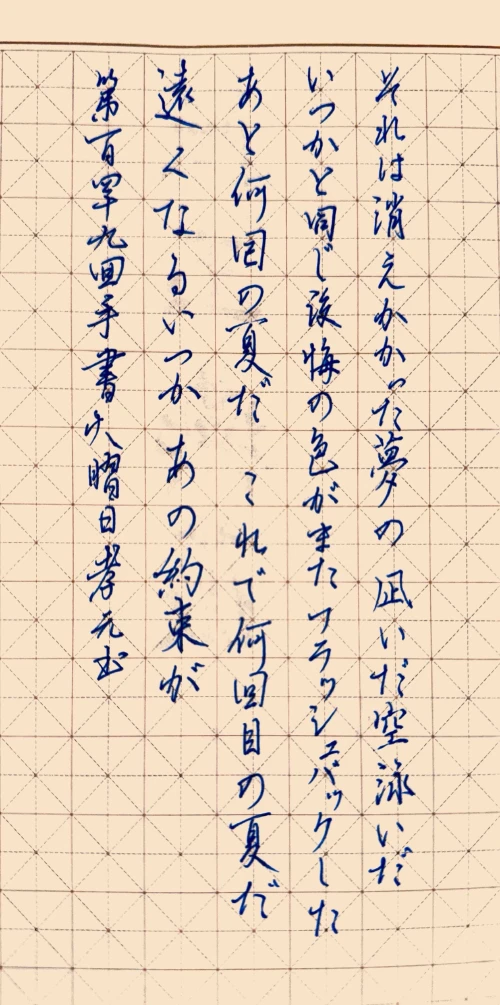 それは消えかかった夢の 凪いだ空 泳いだ
いつかと同じ後悔の色がまたフラッシュバックした
あと何回の夏だ これで何回目の夏だ
遠くなるいつか あの約束が
第百罕九回手書火曜日孝元书